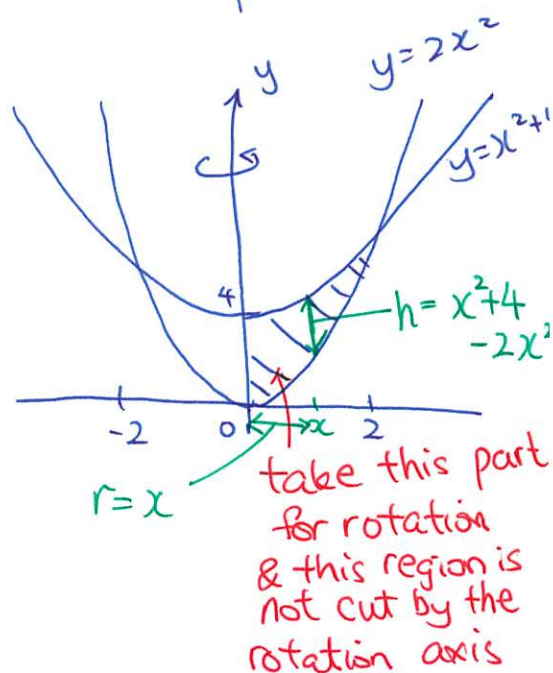 y
y=2x²
y=x²+
4
h= x²+4
-2x²
-2
0
x
2
r=x
take this part
for rotation
& this region is
not cut by the
rotation axis